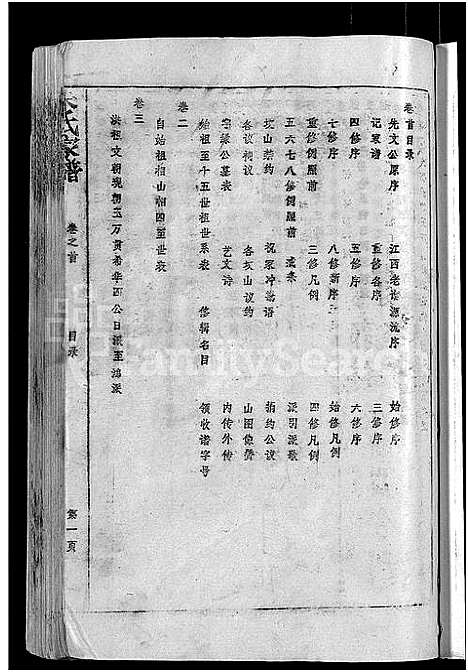 卷首目录
先文公原序 江西老谱源流序 始修序
记宗谱 重修各序 三修序
四修序 五修序 六修序
七修序 八修新序 始修凡例
重修例照前 三修凡例 四修凡例
五六七八修例照前 派引派歌
坟山禁约 祝冢冲禁语 捐约公议
各议祠议 各坟山议约 山图像赞
公墓表 艺文诗 内传外传
卷二
始祖至十五世祖世系表 修辑名目 领收谱字号
自始祖相山祠四至世表
卷三
洪祖文朝 公日派至鸿派
氏宗谱
卷之首
目录
第一页
familysearch